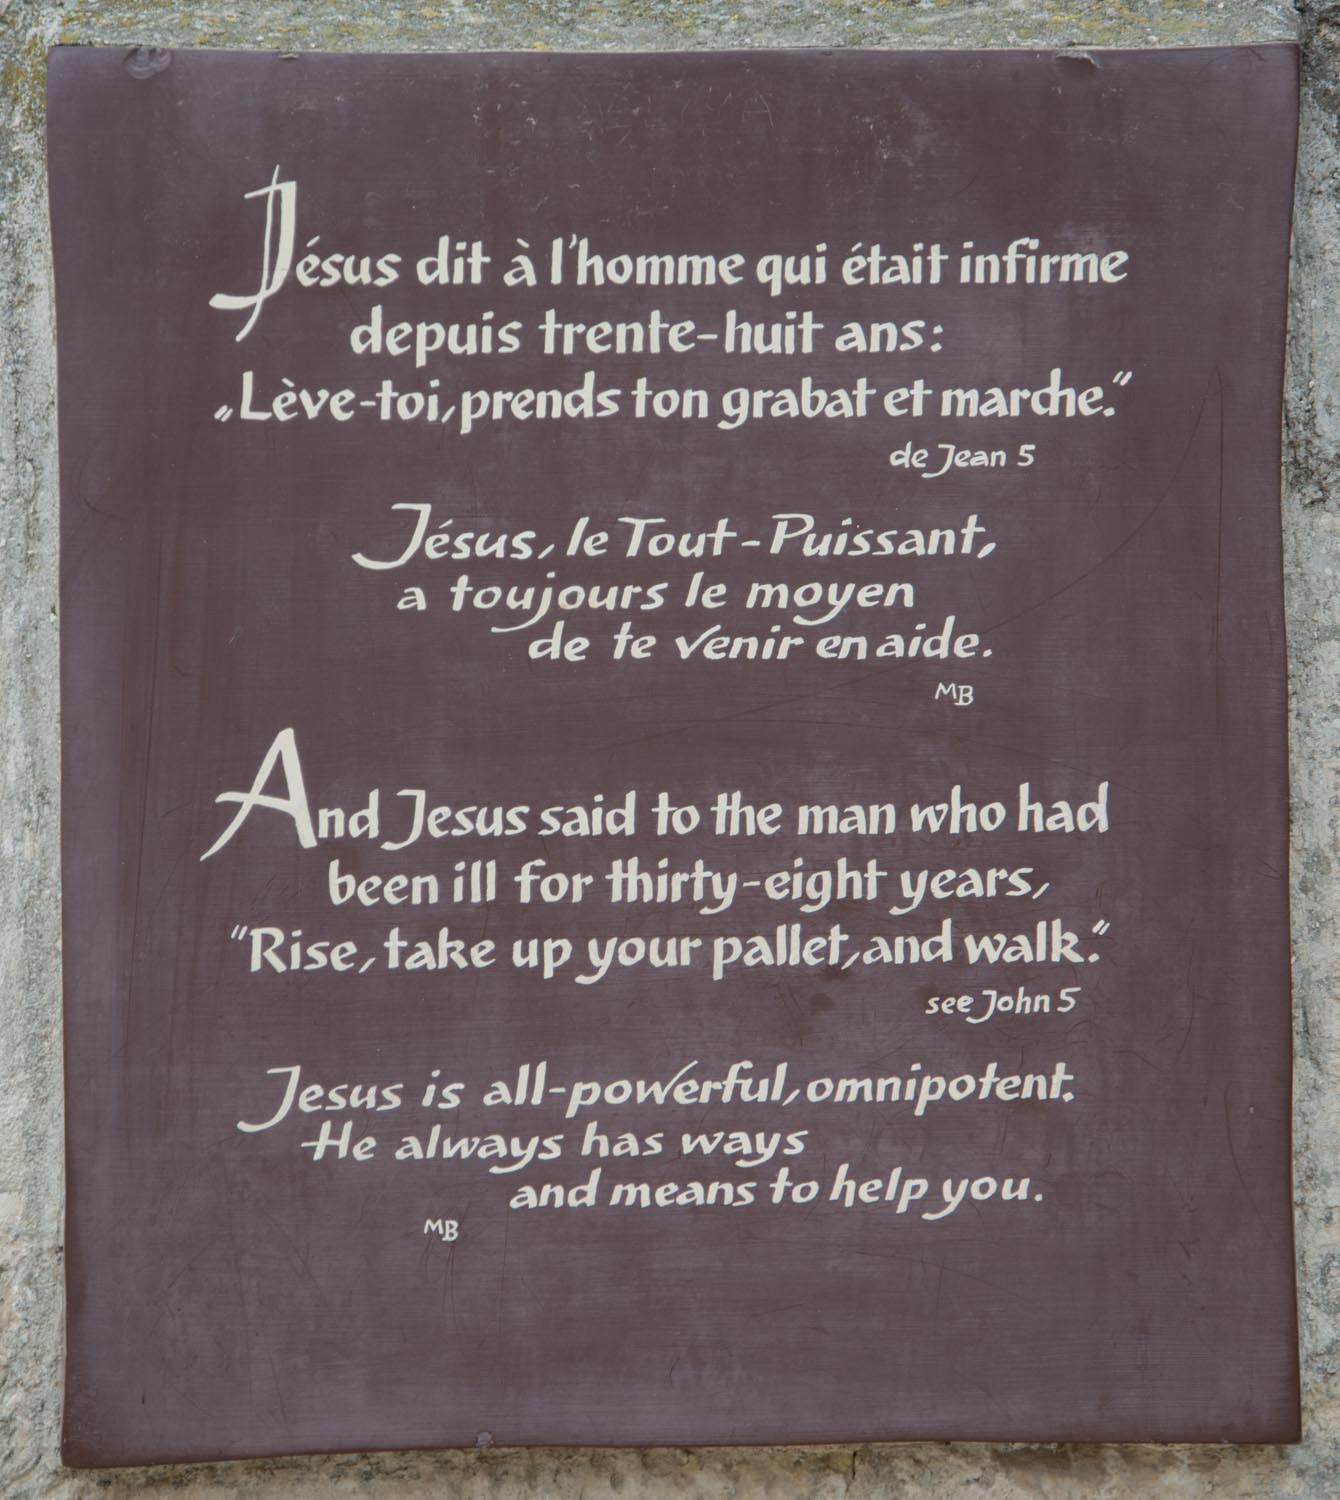 Jésus dit à l'homme qui était infirme
depuis trente-huit ans:
„Lève-toi, prends ton grabat et marche.“
de Jean 5
Jésus, le Tout-Puissant,
a toujours le moyen
de te venir en aide.
MB
And Jesus said to the man who had
been ill for thirty-eight years,
“Rise, take up your pallet, and walk.”
see John 5
Jesus is all-powerful, omnipotent.
He always has ways
and means to help you.
MB